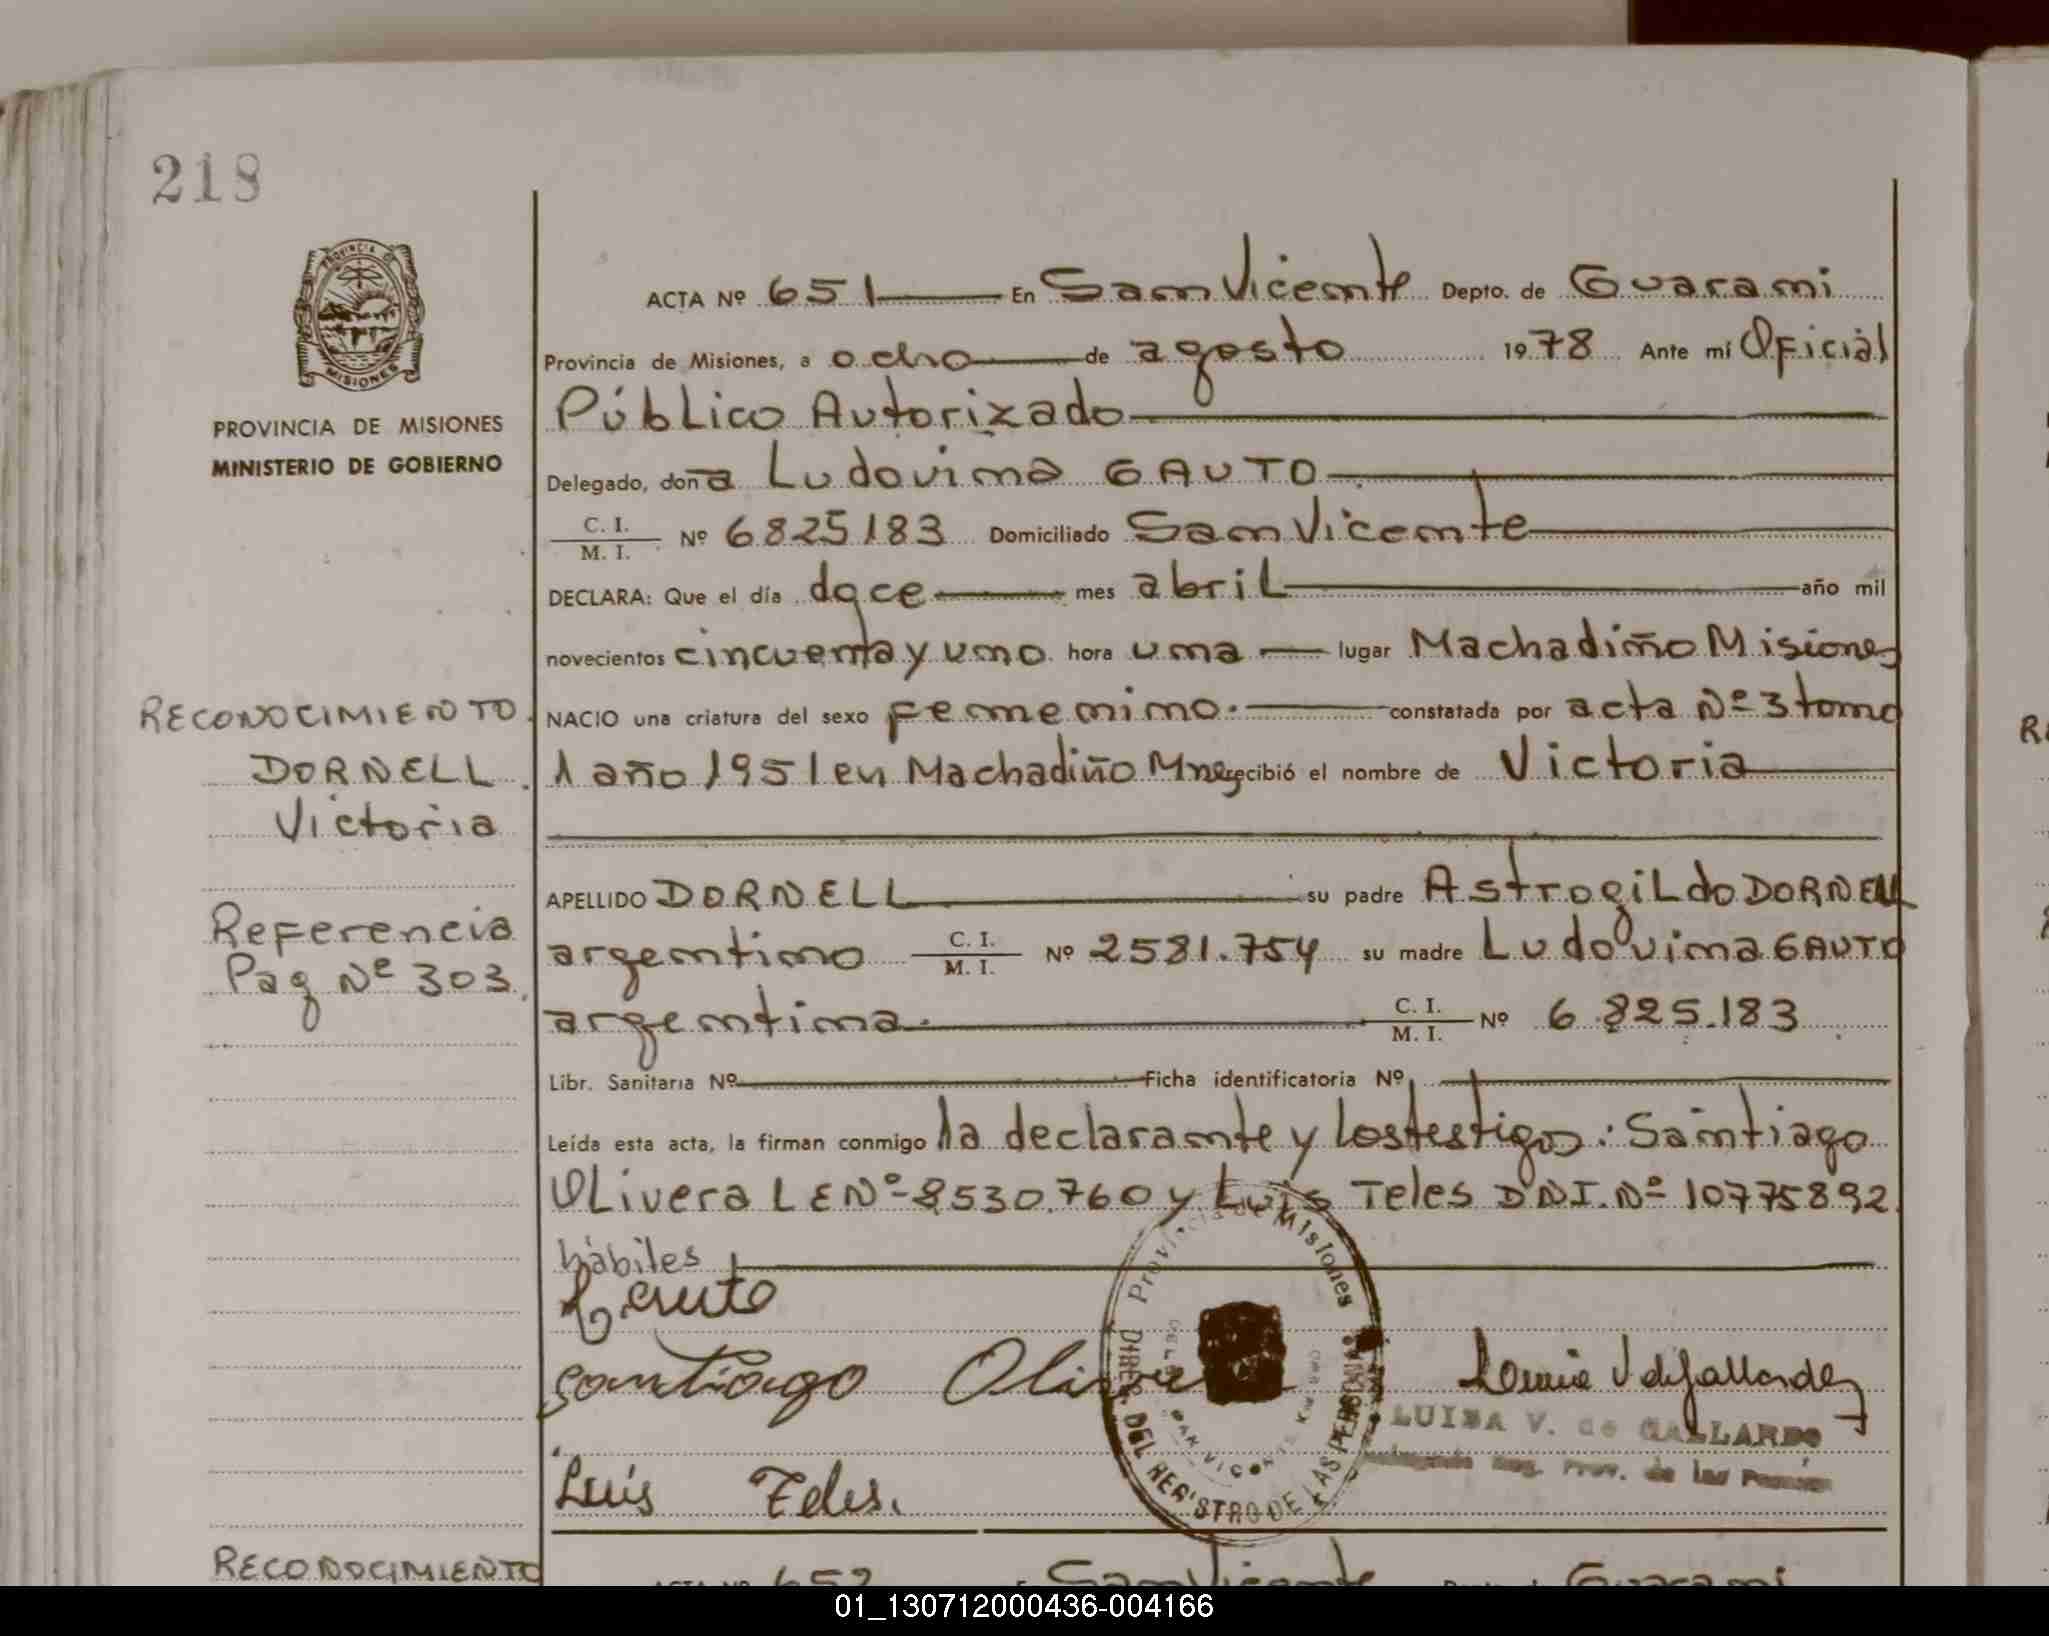 218
PROVINCIA DE MISIONES
PROVINCIA DE MISIONES
MINISTERIO DE GOBIERNO
RECONOCIMIENTO
DORNELL
Victoria
Referencia
Pag Nº 303
ACTA Nº 651 En San Vicente Depto. de Guarani
Provincia de Misiones, a ocho de agosto 1978 Ante mí Oficial
Público Autorizado
Delegado, doña Ludovina GAUTO
C. I. / M. I. Nº 6825183 Domiciliado San Vicente
DECLARA: Que el día doce mes abril año mil
novecientos cincuenta y uno hora una lugar Machadiño Misiones
NACIO una criatura del sexo femenino. constatada por acta Nº 3 tomo
1 año 1951 en Machadiño Mnes recibió el nombre de Victoria
APELLIDO DORNELL su padre Astrogildo DORNELL
argentino C. I. / M. I. Nº 2581.754 su madre Ludovina GAUTO
argentina. C. I. / M. I. Nº 6.825.183
Libr. Sanitaria Nº Ficha identificatoria Nº
Leída esta acta, la firman conmigo la declarante y los testigos: Santiago
Olivera L E Nº 8530.760 y Luis Teles D.N.I. Nº 10775892
hábiles
L. Gauto
Santiago Olivera
Luis Teles.
Provincia de Misiones
DIREC. DEL REGISTRO DE LAS PERSONAS
SAN VICENTE
LUISA V. de GALLARDO
Prov. de las
RECONOCIMIENTO
ACTA Nº 652 En San Vicente Depto. de Guarani
01_130712000436-004166